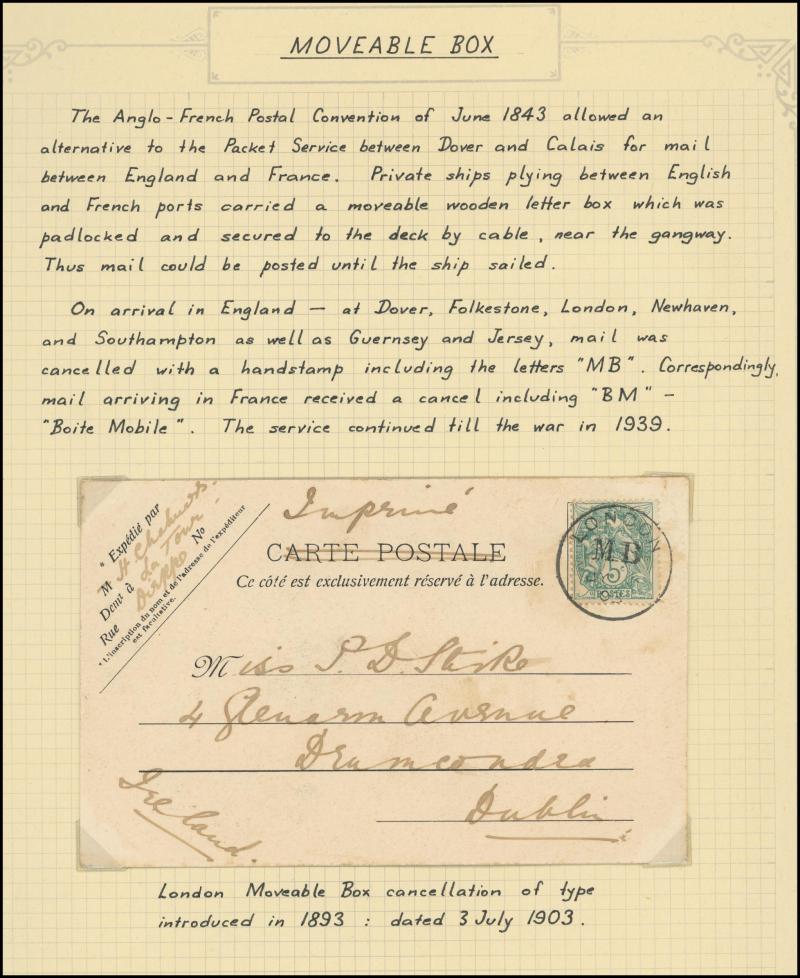 MOVEABLE BOX
The Anglo-French Postal Convention of June 1843 allowed an
alternative to the Packet Service between Dover and Calais for mail
between England and France. Private ships plying between English
and French ports carried a moveable wooden letter box which was
padlocked and secured to the deck by cable, near the gangway.
Thus mail could be posted until the ship sailed.
On arrival in England – at Dover, Folkestone, London, Newhaven,
and Southampton as well as Guernsey and Jersey, mail was
cancelled with a handstamp including the letters "MB". Correspondingly,
mail arriving in France received a cancel including "BM" –
"Boite Mobile". The service continued till the war in 1939.
* Expédié par
M
Demt à La Tour
Rue No
Dieppe
* L'inscription du nom et de l'adresse de l'expéditeur
est facultative.
Imprimé
CARTE POSTALE
Ce côté est exclusivement réservé à l'adresse.
LONDON
MB
03
5c
POSTES
Miss P. D. Stoke
4 Glenarm Avenue
Drumcondra
Dublin
Ireland.
London Moveable Box cancellation of type
introduced in 1893 : dated 3 July 1903.